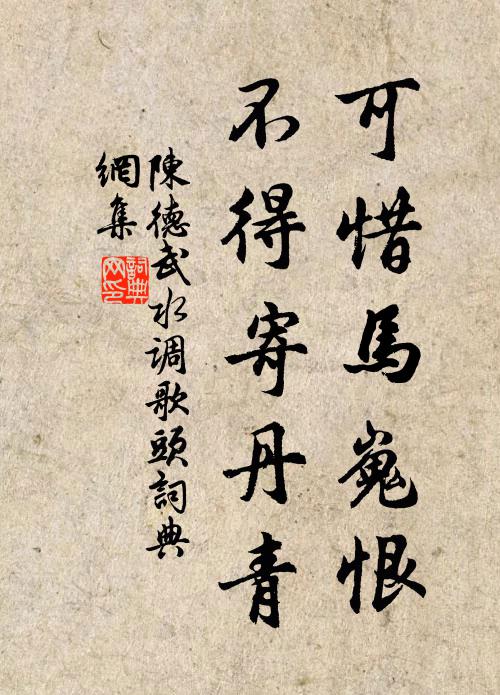 可惜馬嵬恨
不得寄丹青
陳德武水调歌頭詞典
網集
詞典
网印